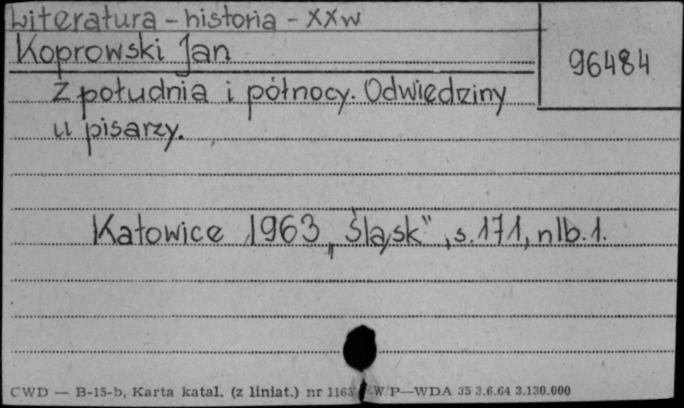 Literatura - historia - XXw
Koprowski Jan
96484
Z południa i północy. Odwiedziny
u pisarzy.
Katowice 1963 „Śląsk", s.171, nlb.1.
CWD — B-15-b, Karta katal. (z liniat.) nr 1163 W P—WDA 35 3.6.64 3.130.000